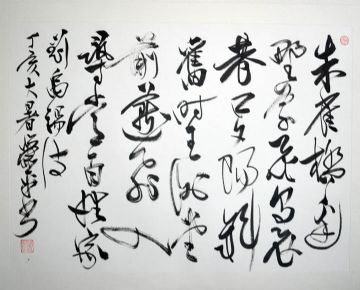 朱雀橋邊
野草花烏衣
巷口夕陽斜
舊時王謝堂
前燕飛入
尋常百姓家
劉禹錫詩
丁亥大暑